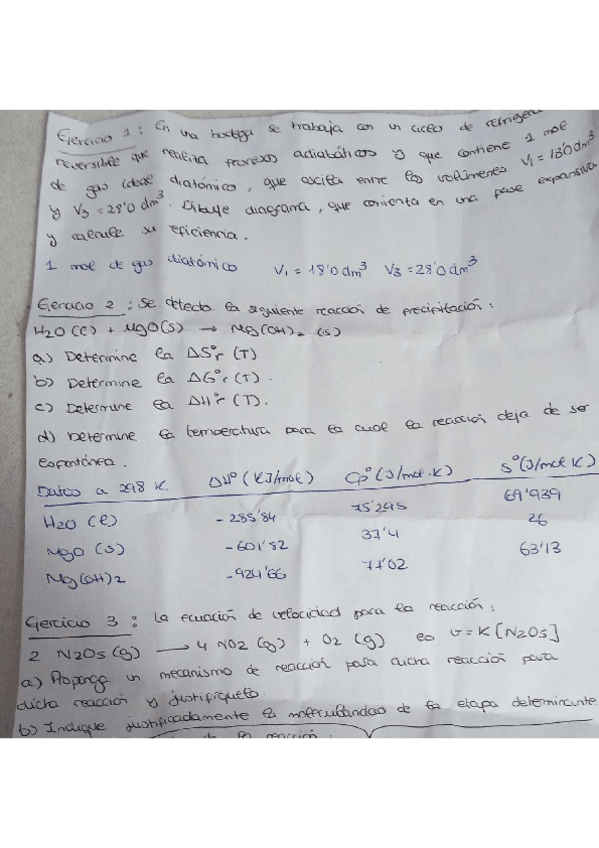 Ejercicio 1: En una bodega se trabaja con un ciclo de refrigera
reversible que realiza procesos adiabáticos y que contiene 1 mol
de gas ideal diatómico, que oscila entre los volúmenes V₁ = 18'0 dm³
y V₃ = 28'0 dm³. Dibuje diagrama, que comienza en una fase expansiva
y calcule su eficiencia.
1 mol de gas diatómico V₁ = 18'0 dm³ V₃ = 28'0 dm³
Ejercicio 2: Se detecta la siguiente reacción de precipitación:
H₂O (l) + MgO (s) → Mg(OH)₂ (s)
a) Determine la ΔS°r (T)
b) Determine la ΔG°r (T).
c) Determine la ΔH°r (T).
d) Determine la temperatura para la cual la reacción deja de ser
espontánea.
Datos a 298 K. ΔH° (KJ/mol) Cp° (J/mol·K) S° (J/mol K)
H₂O (l) -285'84 75'295 69'939
MgO (s) -601'82 37'4 26
Mg(OH)2 -924'66 77'02 63'13
Ejercicio 3: La ecuación de velocidad para la reacción:
2 N₂O₅ (g) → 4 NO₂ (g) + O₂ (g) es v = K [N₂O₅]
a) Proponga un mecanismo de reacción para dicha reacción para
dicha reacción y justifíquelo.
b) Indique justificadamente la molecularidad de la etapa determinante
de la reacción.